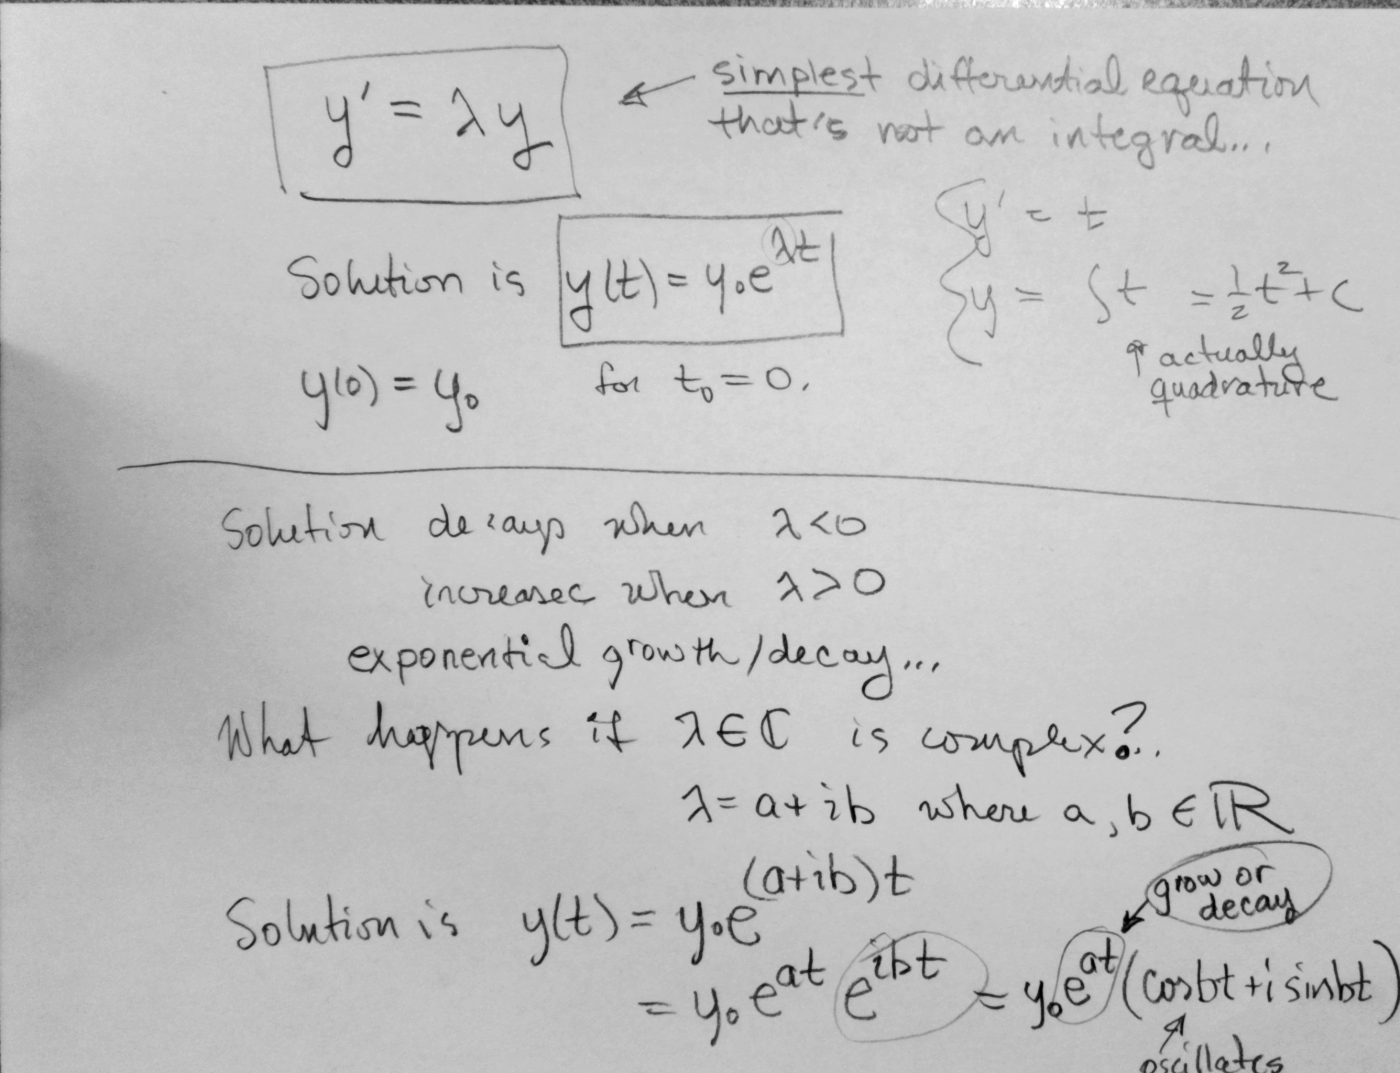 y' = λy
← simplest differential equation
that's not an integral...
y' = t
y = ∫t = ½t² + C
↑ actually
quadrature
Solution is y(t) = y₀e^{λt}
y(0) = y₀ for t₀ = 0.
Solution decays when λ<0
increases when λ>0
exponential growth/decay...
What happens if λ∈ℂ is complex?..
λ = a+ib where a,b ∈ ℝ
Solution is y(t) = y₀e^{(a+ib)t}
grow or
decay
= y₀e^{at} e^{ibt} = y₀e^{at}(cosbt + i sinbt)
oscillates